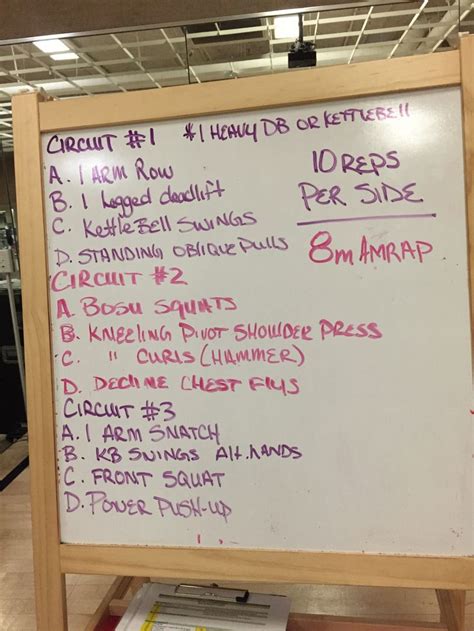 CIRCUIT #1 *1 HEAVY DB OR KETTLEBELL
A. 1 ARM ROW
B. 1 legged deadlift
C. KettleBell SWINGS
D. STANDING OBLIQUE PULLS
10 REPS
PER SIDE
8m AMRAP
CIRCUIT #2
A. BOSU SQUATS
B. KNEELING PIVOT SHOULDER PRESS
C. " CURLS (HAMMER)
D. DECLINE CHEST FLYS
CIRCUIT #3
A. 1 ARM SNATCH
B. KB SWINGS Alt. hANDS
C. FRONT SQUAT
D. POWER PUSH-UP